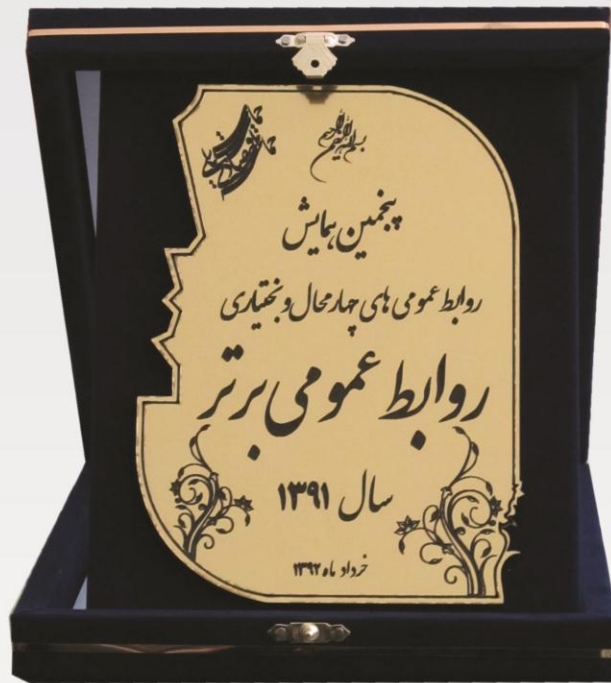 بسم الله الرحمن الرحیم
پنجمین همایش
روابط عمومی های چهارمحال و بختیاری
روابط عمومی برتر
سال ۱۳۹۱
خرداد ماه ۱۳۹۲